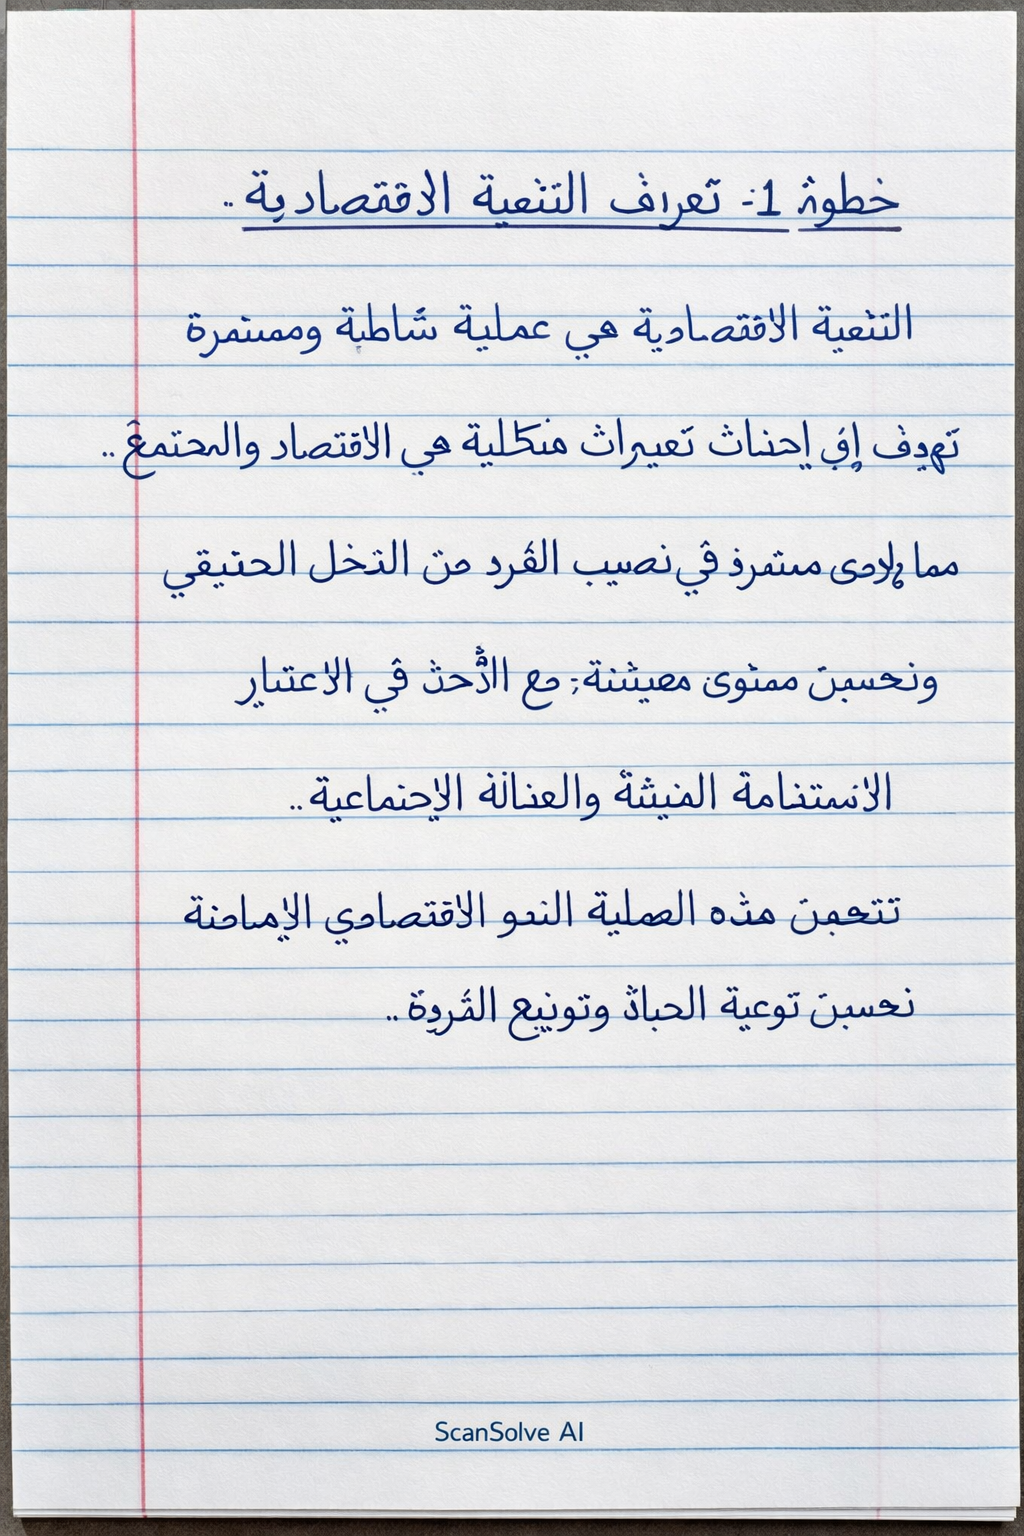 خطوة 1- تعراف التنعية الاقتصادية ..
التنعية الاقتصادية هي عملية شاطبة وممستمرة
تهدف إفي إحناث تعيراث منكلية هي الاقتصاد والمحتمع ..
مما مىتمرذ في نصيب الفرد من الدخل الحتيقي
ونحسين ممتوى معيثنة; مع في الاعتبار
الانمتنامة المنيثة والعنالة الإحنماعية ..
تتحمن مذه العملية النعو الاقتصادي الإماضنة
نحسبن توعية الحباة وتونيع الفروة ..
ScanSolve AI